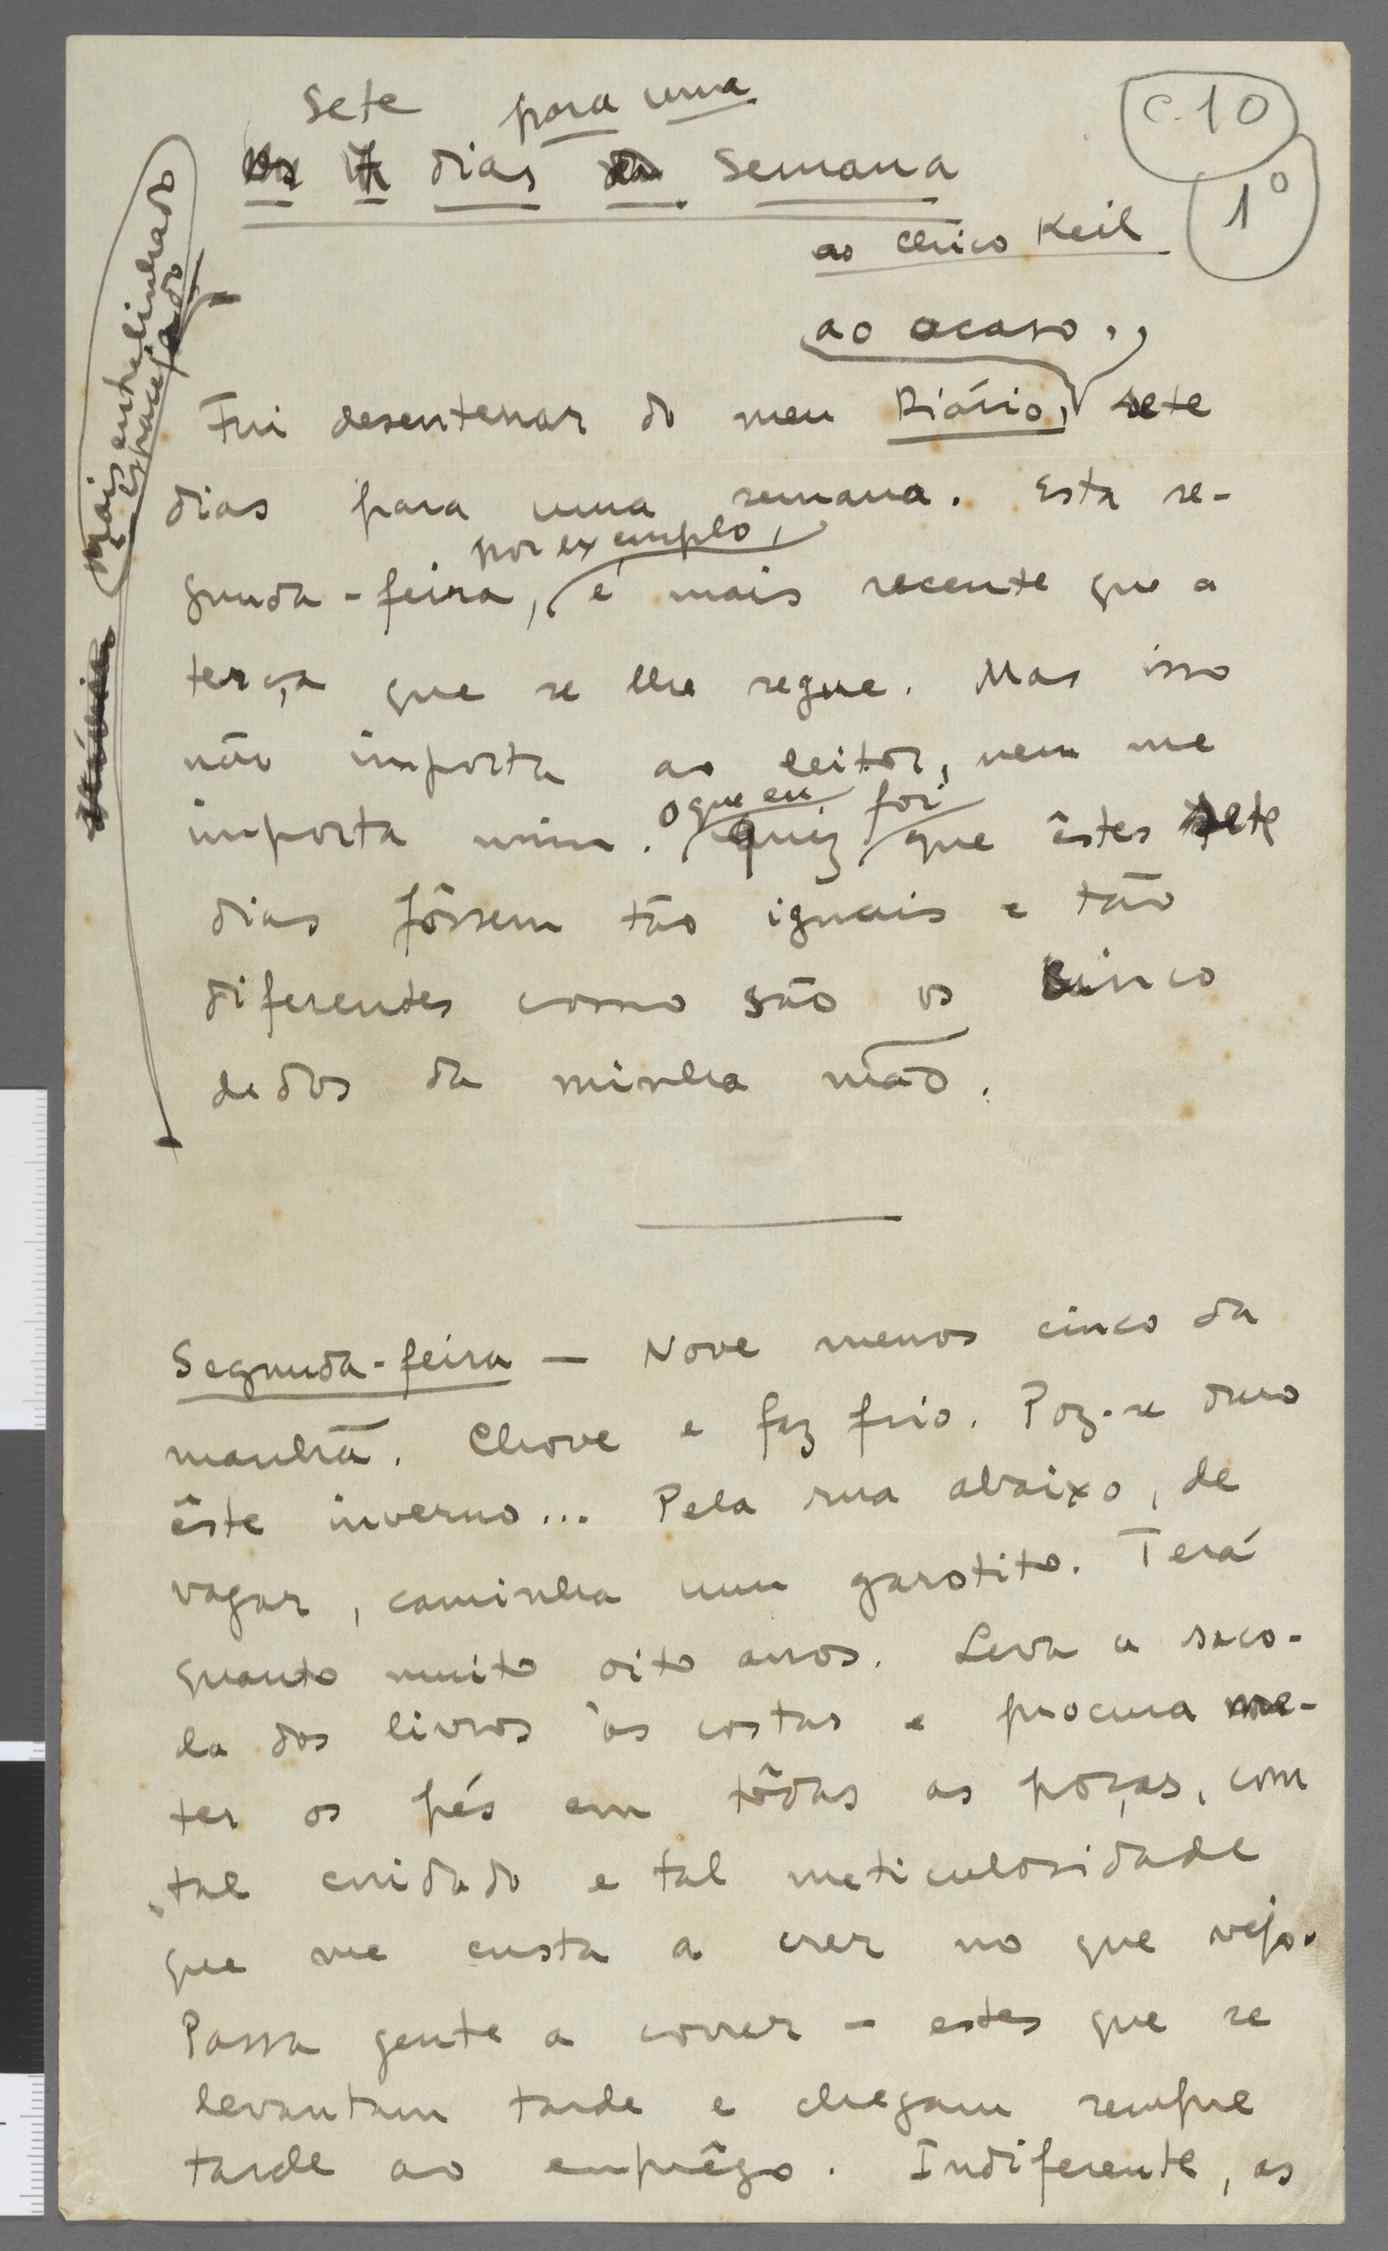 Sete para uma
Os 7 dias da Semana
C. 10
1º
ao Chico Keil
Mais entrelinhado
e espacejado
ao acaso,
Fui desenterrar do meu Diário, sete
dias para uma semana. Esta se-
por exemplo,
gunda-feira, é mais recente que a
terça que se lhe segue. Mas isso
não importa ao leitor, nem me
o que eu foi
importa mim. quiz que êstes sete
dias fôssem tão iguais e tão
diferentes como são os cinco
dedos da minha mão.
Segunda-feira — Nove menos cinco da
manhã. Chove e faz frio. Poz-se duro
êste inverno... Pela rua abaixo, de
vagar, caminha um garotito. Terá
quanto muito oito anos. Leva a saco-
la dos livros às costas e procura me-
ter os pés em tôdas as poças, com
tal cuidado e tal meticulosidade
que me custa a crer no que vejo.
Passa gente a correr — estes que se
levantam tarde e chegam sempre
tarde ao emprêgo. Indiferente, as